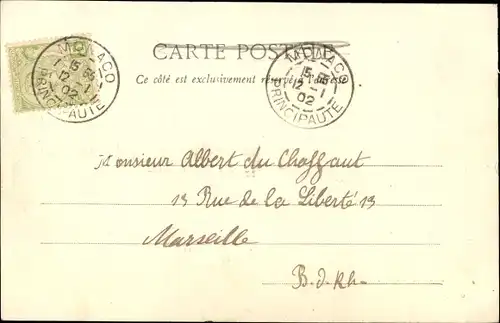 CARTE POSTALE
Ce côté est exclusivement réservé à l'adresse
MONACO
15 35
12 - 1
02
PRINCIPAUTÉ
MONACO
15 35
12 - 1
02
PRINCIPAUTÉ
Monsieur Albert du Chaffaut
13 Rue de la Liberté 13
Marseille
B. d. Rh.